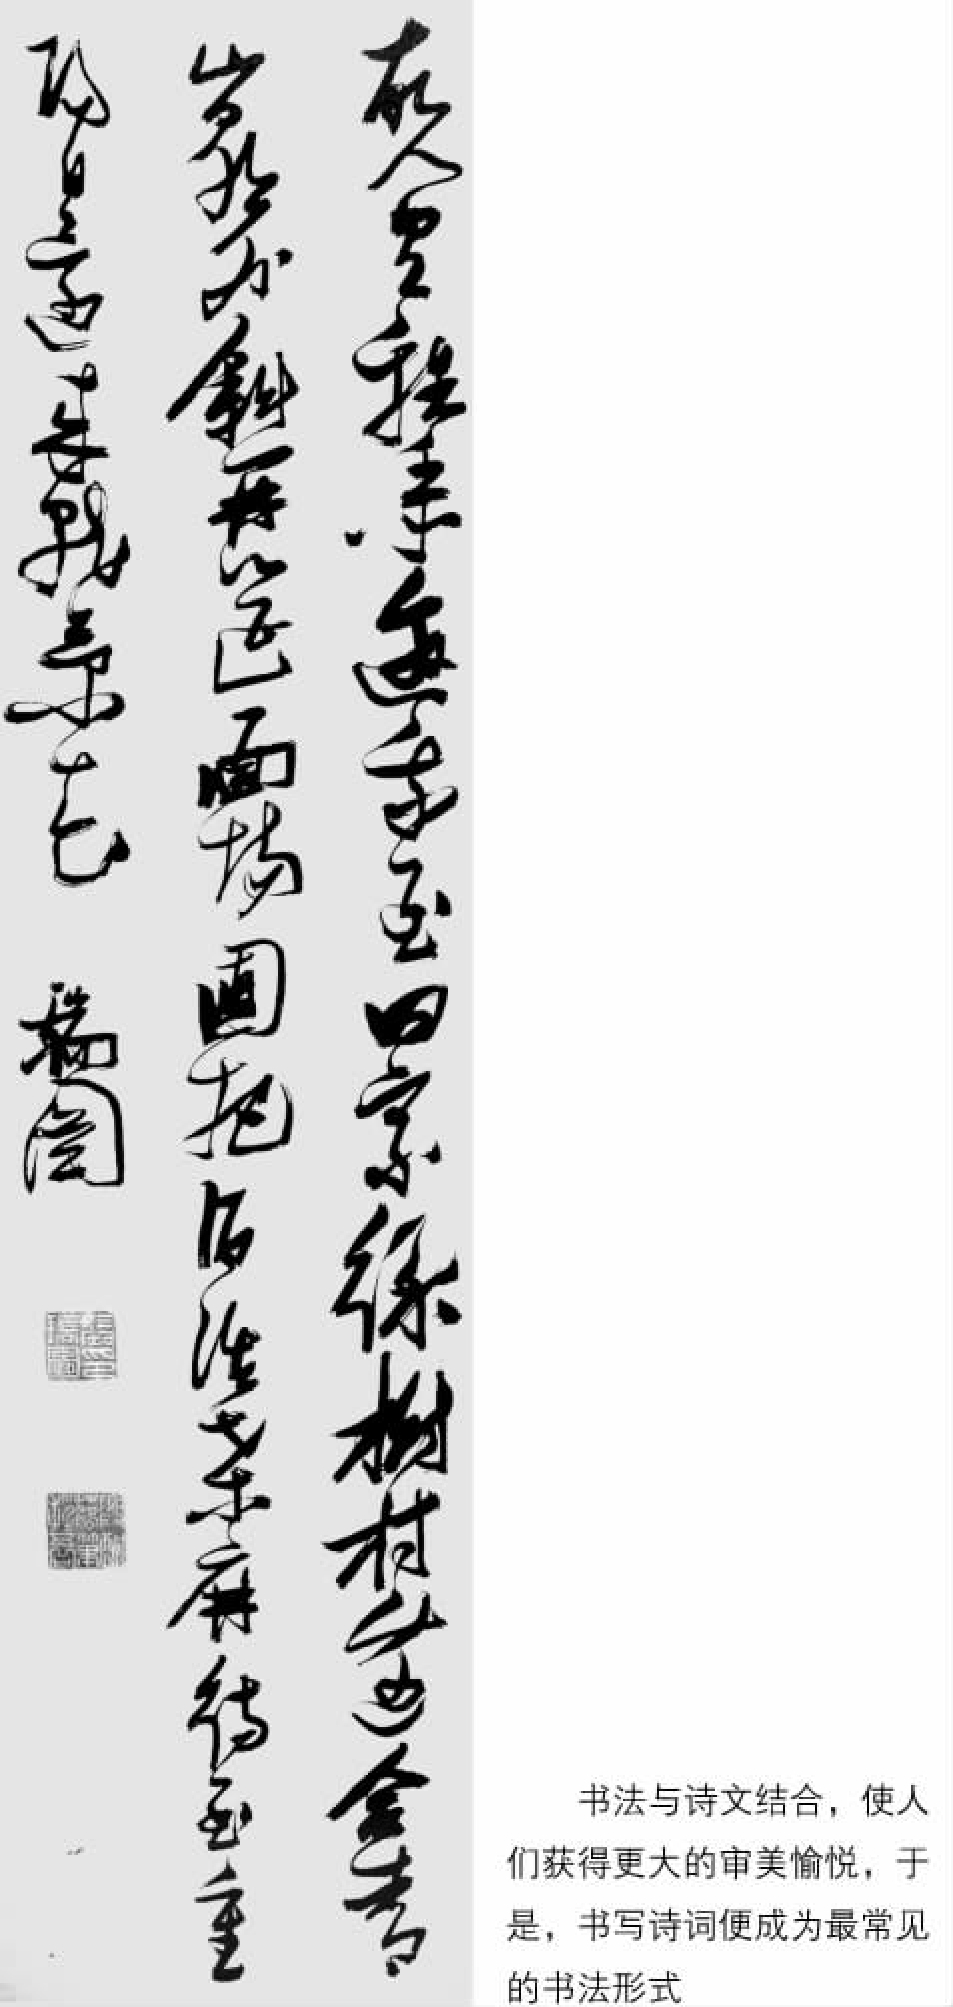 故人具雞黍邀我至田家綠樹村邊合青
山郭外斜開筵面場圃把酒話桑麻待到重
陽日還來就菊花 瑞圖
书法与诗文结合，使人
们获得更大的审美愉悦，于
是，书写诗词便成为最常见
的书法形式